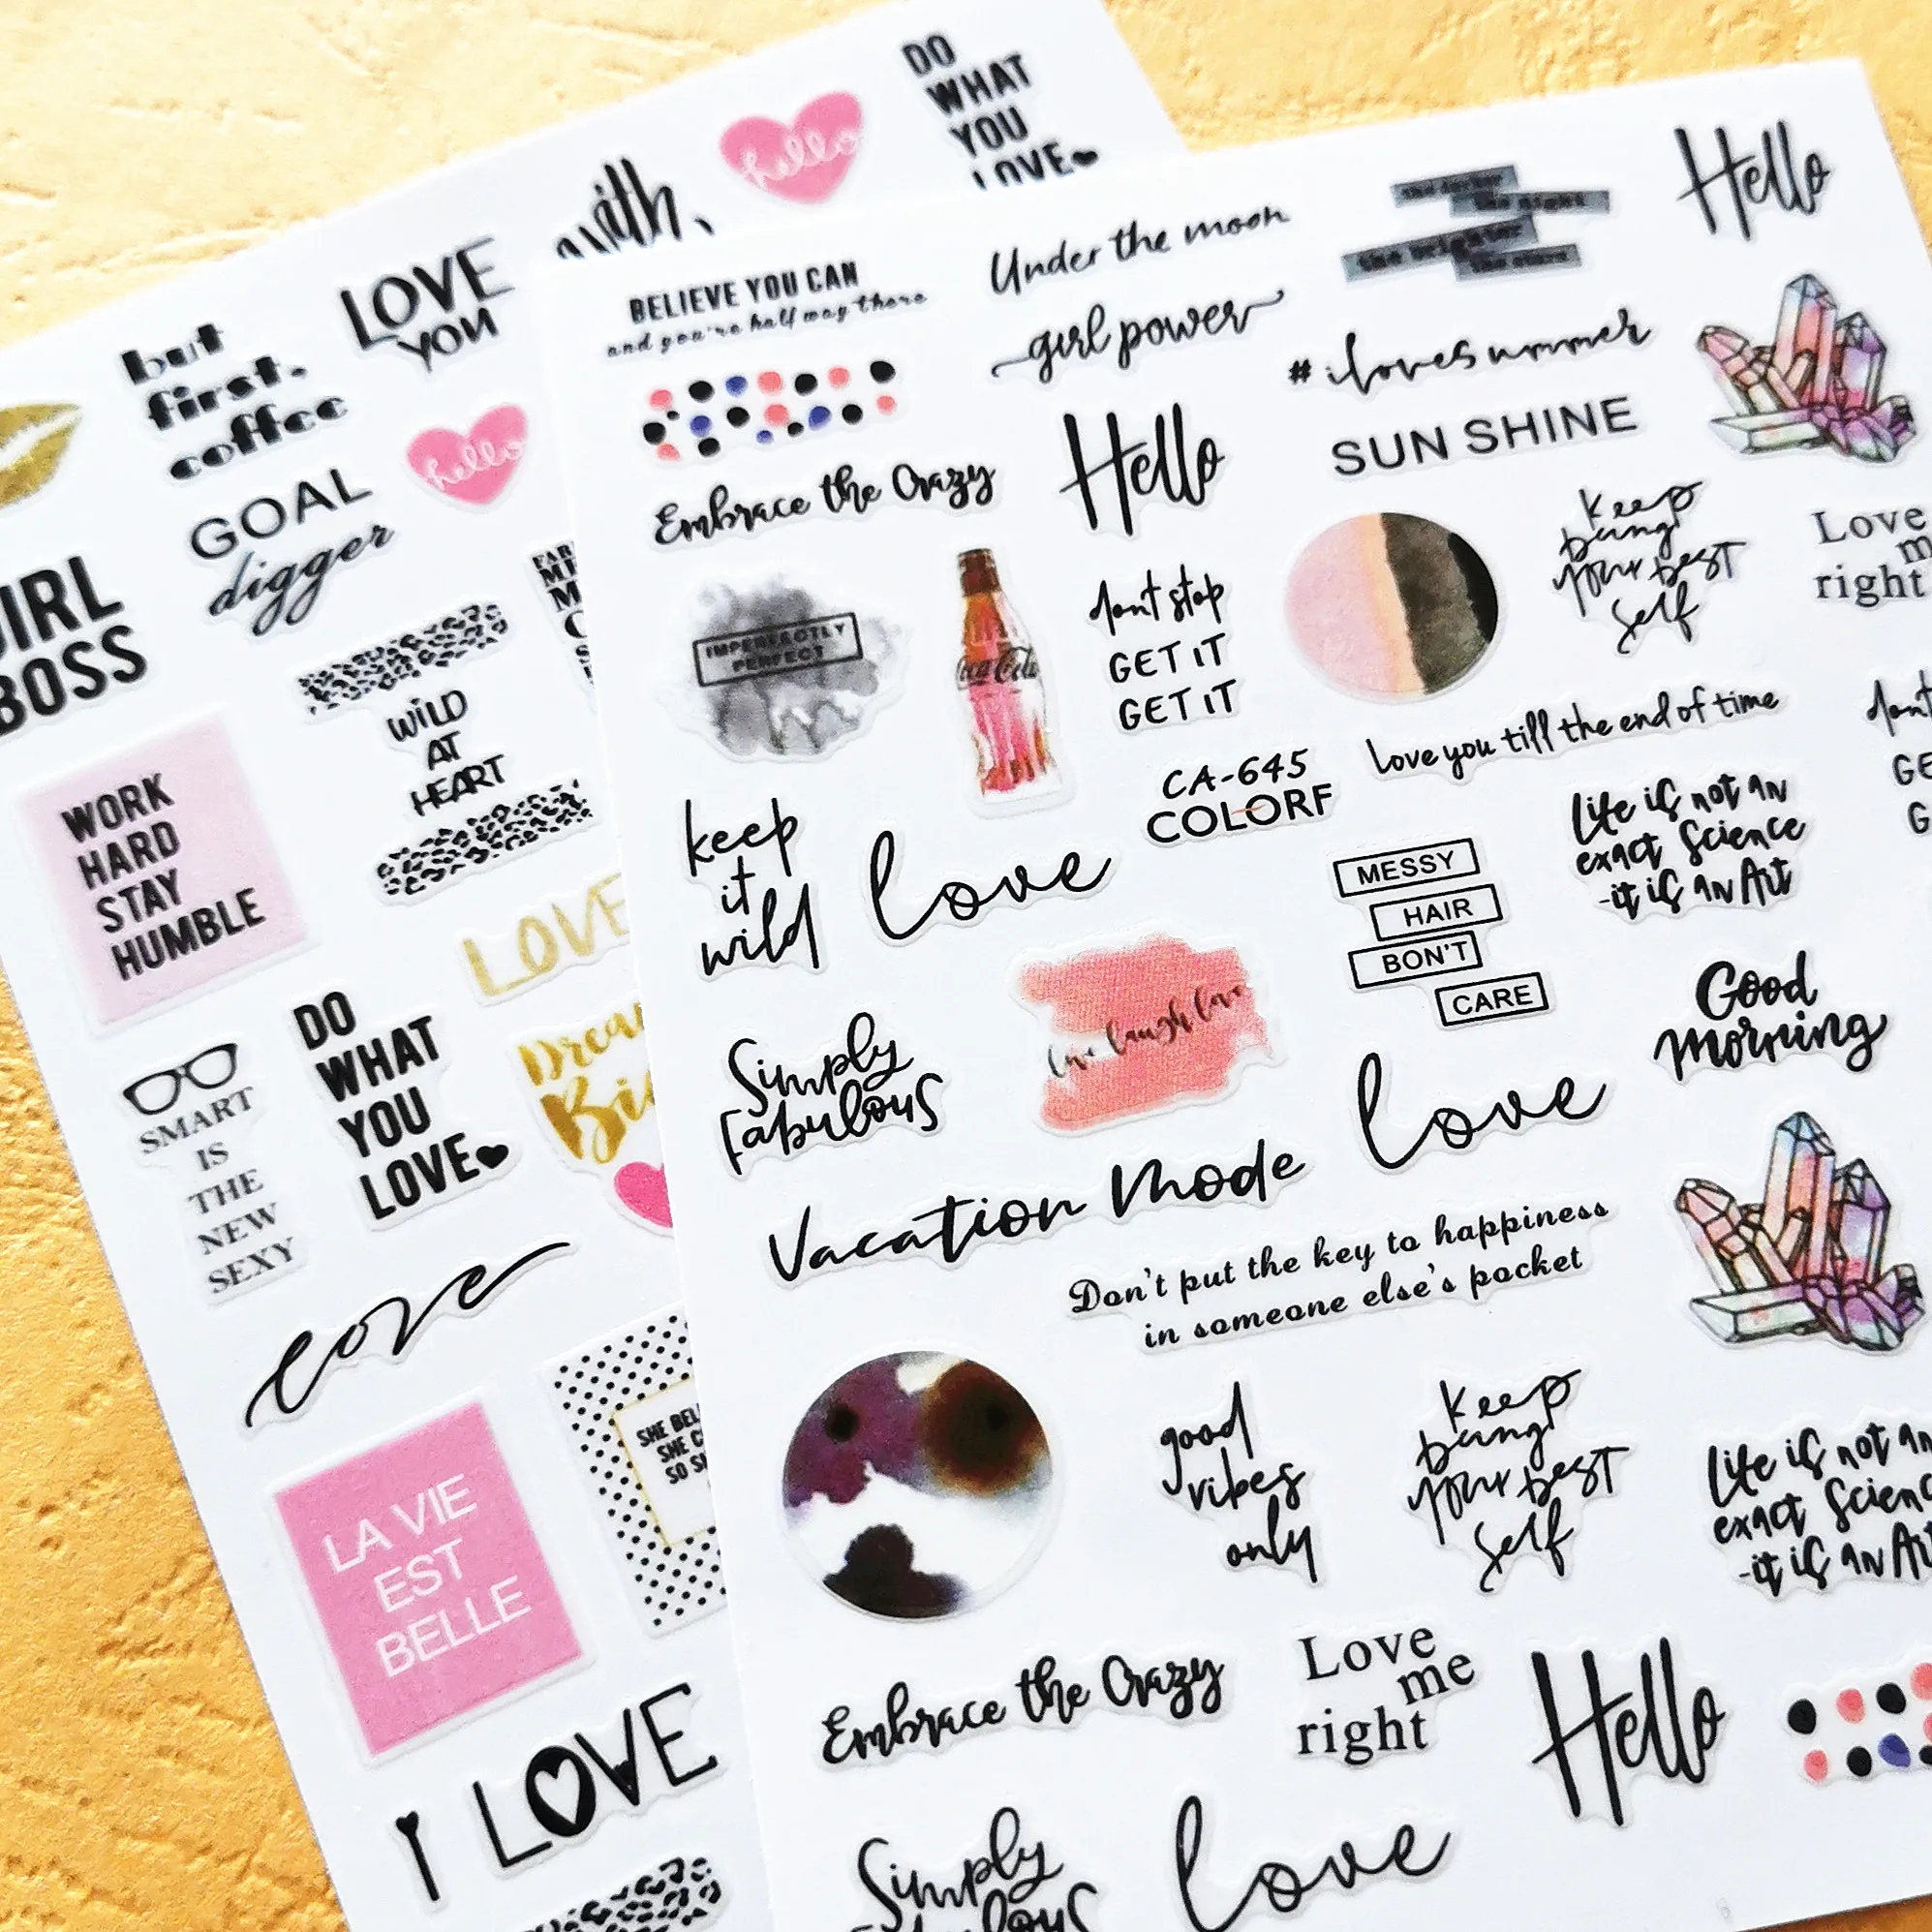 DO
WHAT
YOU
LOVE
hello
with
LOVE
YOU
but
first.
coffee
hello
GOAL
digger
GIRL
BOSS
WILD
AT
HEART
WORK
HARD
STAY
HUMBLE
LOVE
DO
WHAT
YOU
LOVE
SMART
IS
THE
NEW
SEXY
love
SHE
SHE
SO
LA VIE
EST
BELLE
I LOVE
BELIEVE YOU CAN
and you're half way there
Under the moon
girl power
the night
the brighter
the stars
Hello
# ilovesummer
SUN SHINE
Embrace the Crazy
Hello
IMPERFECTLY
PERFECT
Coca-Cola
dont stop
GET IT
GET IT
keep
being
your best
self
Love
right
love you till the end of time
dont
CA-645
COLORF
keep
it
wild
love
MESSY
HAIR
BON'T
CARE
Life is not an
exact Science
-it is an Art
Simply
fabulous
live laugh love
love
Good
morning
Vacation Mode
Don't put the key to happiness
in someone else's pocket
good
vibes
only
keep
being
your best
self
Life is not an
exact
-it is an Art
Embrace the Crazy
Love
me
right
Hello
Simply
fabulous
love